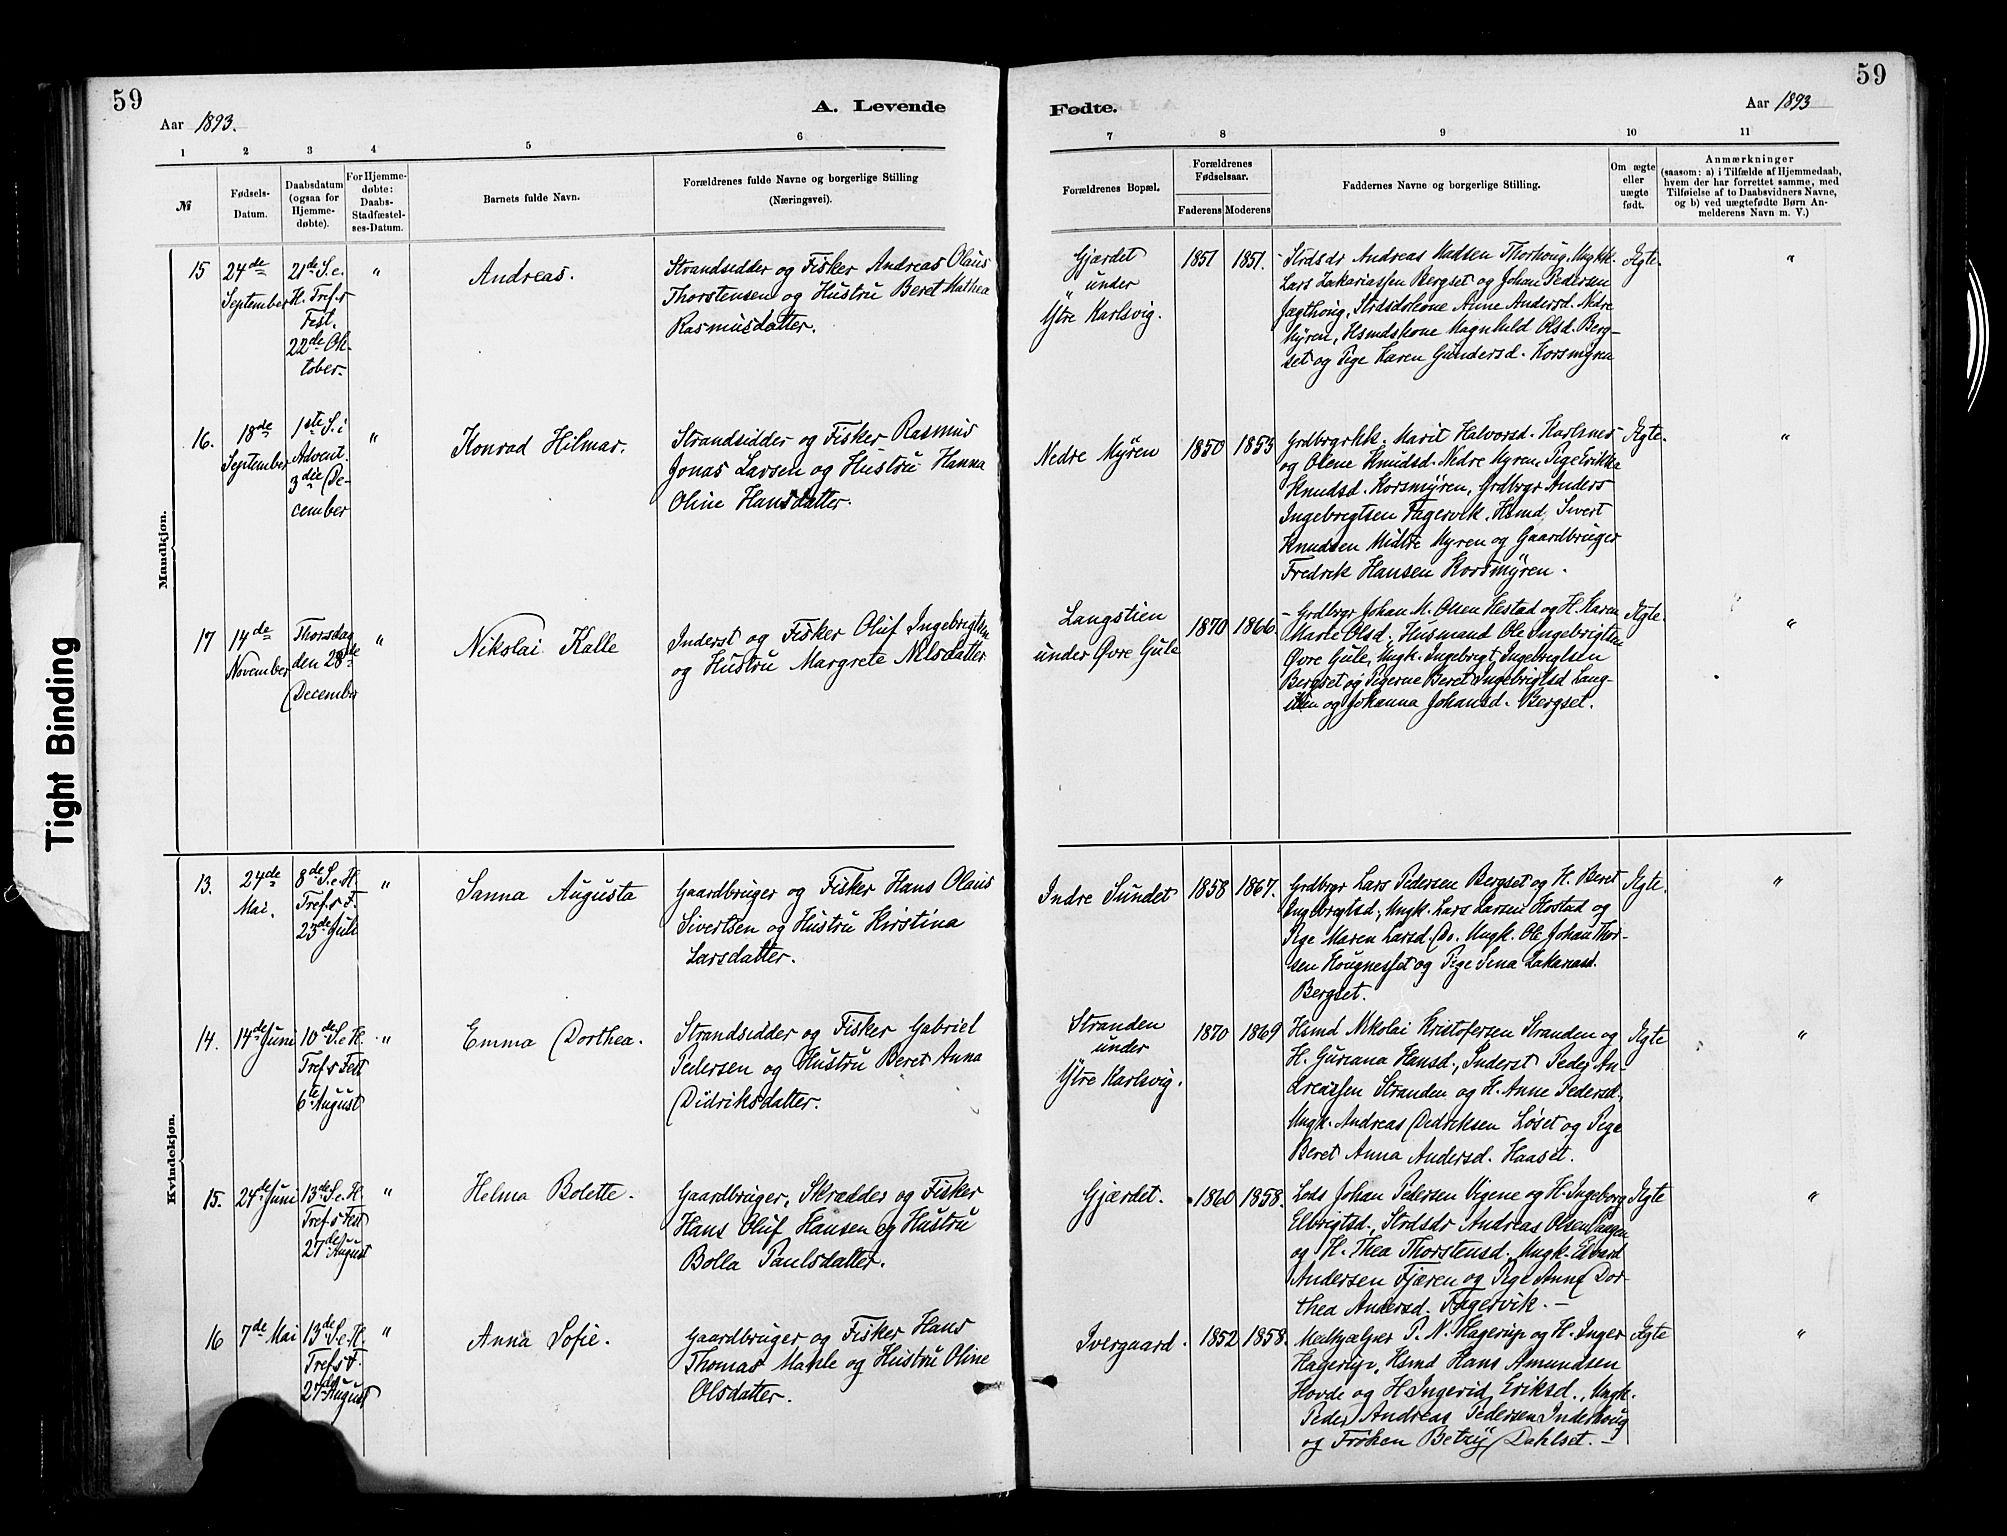 59
Aar 1893.
A. Levende
1 2 3 4 5 6
№
Fødsels-
Datum.
Daabsdatum
(ogsaa for
Hjemme-
døbte).
For Hjemme-
døbte:
Daabs-
Stadfæstel-
ses-Datum.
Barnets fulde Navn.
Forældrenes fulde Navne og borgerlige Stilling
(Næringsvei).
Mandkjøn.
15
24de
September
21de S. e.
H. Tref.s
Fest.
22de Ok-
tober.
"
Andreas.
Strandsidder og Fisker Andreas Olaus
Thorstensen og Hustru Beret Mathea
Rasmusdatter.
16.
18de
September
1ste S. i
Advent.
3die De-
cember
"
Konrad Hilmar.
Strandsidder og Fisker Rasmus
Jonas Larsen og Hustru Hanna
Oline Hansdatter.
17
14de
November
Thorsdag
den 28de
December
"
Nikolai Kalle
Inderst og Fisker Oluf Ingebrigtsen
og Hustru Margrete Nilsdatter
Kvindekjøn.
13.
24de
Mai.
8de S. e. H.
Tref.s F.
23de Juli
"
Sanna Augusta
Gaardbruger og Fisker Hans Olaus
Sivertsen og Hustru Kirstina
Larsdatter.
14.
14de Juni
10de S. e. H.
Tref.s Fest
6te August
"
Emma Dorthea.
Strandsidder og Fisker Gabriel
Pedersen og Hustru Beret Anna
Didriksdatter.
15.
24de Juni
13de S. e. H.
Tref.s Fest
27de August
"
Helma Bolette.
Gaardbruger, Skrædder og Fisker
Hans Oluf Hansen og Hustru
Bolla Paulsdatter.
16
7de Mai
13de S. e. H.
Tref.s F.
27de August
"
Anna Sofie.
Gaardbruger og Fisker Hans
Thomas Mahle og Hustru Oline
Olsdatter.
Tight Binding
59
Fødte.
Aar 1893
7 8 9 10 11
Forældrenes Bopæl.
Forældrenes
Fødselsaar.
Faderens Moderens
Faddernes Navne og borgerlige Stilling.
Om ægte
eller
uægte
født.
Anmærkninger
(saasom: a) i Tilfælde af Hjemmedaab,
hvem der har forrettet samme, med
Tilføielse af to Daabsvidners Navne,
og b) ved uægtefødte Børn An-
melderens Navn m. V.)
Gjærdet
under
Ytre Karlsvig.
1851
1851.
Strdsdr Andreas Madsen Thorhoug, Ungk.
Lars Zakariassen Bergset og Johan Pedersen
Jægthoug, Strdsdskone Anne Andersd. Nedre
Myren, Hsmdskone Magnhild Olsd. Berg-
set og Pige Karen Gundersd. Korsmyren
Ægte.
"
Nedre Myren
1850
1853
Grdbrgrkk. Marit Halvorsd. Karlsnes
og Olene Knudsd. Nedre Myren, Pige Erikka
Knudsd. Korsmyren, Grdbrgr Anders
Ingebregtsen Fagervik, Hsmd. Sivert
Knudsen Midtre Myren og Gaardbruger
Fredrik Hansen Korsmyren.
Ægte.
"
Langstien
under Øvre Gule
1870
1866.
Grdbrgr Johan M. Olsen Hestad og H. Karen
Marie Olsd. Husmand Ole Ingebrigtsen
Øvre Gule, Ungk. Ingebregt Ingebregtsen
Bergset og Pigerne Beret Ingebrigtsd Lang-
stien og Johanna Johansd. Bergset.
Ægte.
"
Indre Sundet
1858
1867.
Grdbrgr Lars Pedersen Bergset og H. Beret
Ingebregtsd, Ungk. Lars Larsen Hostad og
Pige Maren Larsd. Do. Ungk. Ole Johan Thor-
sen Hougnesset og Pige Sena Zakariasd.
Bergset.
Ægte.
"
Stranden
under
Ytre Karlsvig.
1870
1869
Hsmd Nikolai Kristofersen Stranden og
H. Guriana Hansd., Inderst Peder An-
dreassen Stranden og H. Anne Pedersd.
Ungk. Andreas Didriksen Løset og Pige
Beret Anna Andersd. Haaset.
Ægte
"
Gjærdet.
1860
1858.
Lods Johan Pedersen Vigene og H. Ingeborg
Elbrigtsd., Strdsdr Andreas Olsen
og H. Thea Thorstensd. Ungk. Edvard
Andersen Fjæren og Pige Anne Dor-
thea Andersd. Fagervik. —
Ægte
"
Ivergaard.
1852
1858.
P. N. Hagerup og H. Inger
Hagerup, Hsmd Hans Amundsen
Hovde og H. Ingerid Eriksd., Ungk.
Peder Andreas Pedersen Inderhoug
og Frøken Betzy Dahlset. —
Ægte
"